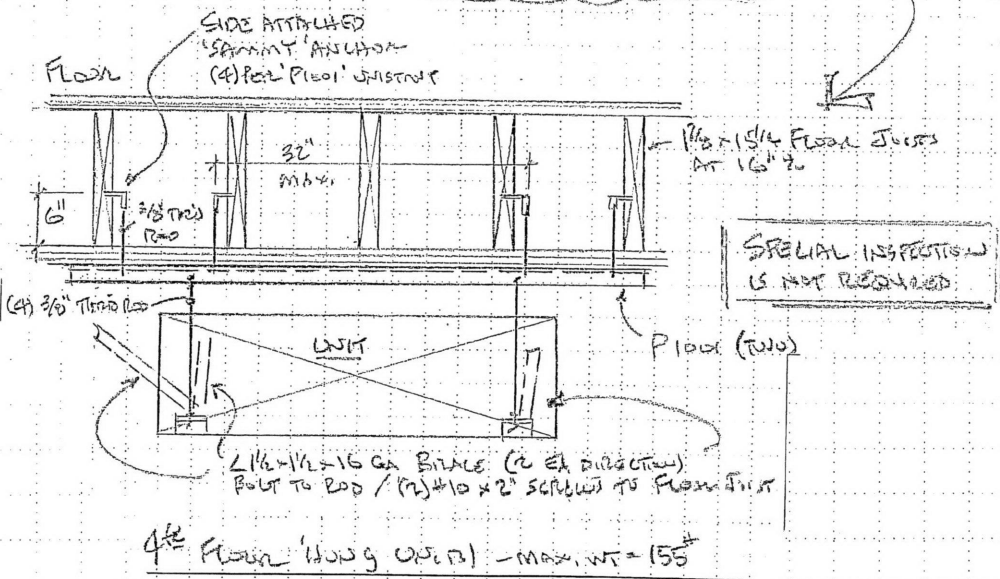 SIDE ATTACHED
'SAMMY' ANCHOR
(4) PER 'P1001' UNISTRUT
FLOOR
32"
MAX.
6"
3/8" THR'D
ROD
1 3/4 x 15 1/4 FLOOR JOISTS
AT 16" %
SPECIAL INSPECTION
IS NOT REQUIRED
(4) 3/8" THR'D ROD
UNIT
P1001 (TWO)
L 1 1/2 x 1 1/2 x 16 GA BRACE (2 EA DIRECTION)
BOLT TO ROD / (2) #10 x 2" SCREWS TO FLOOR JOIST
FLOOR HUNG UNIT(S) - MAX. WT = 155#